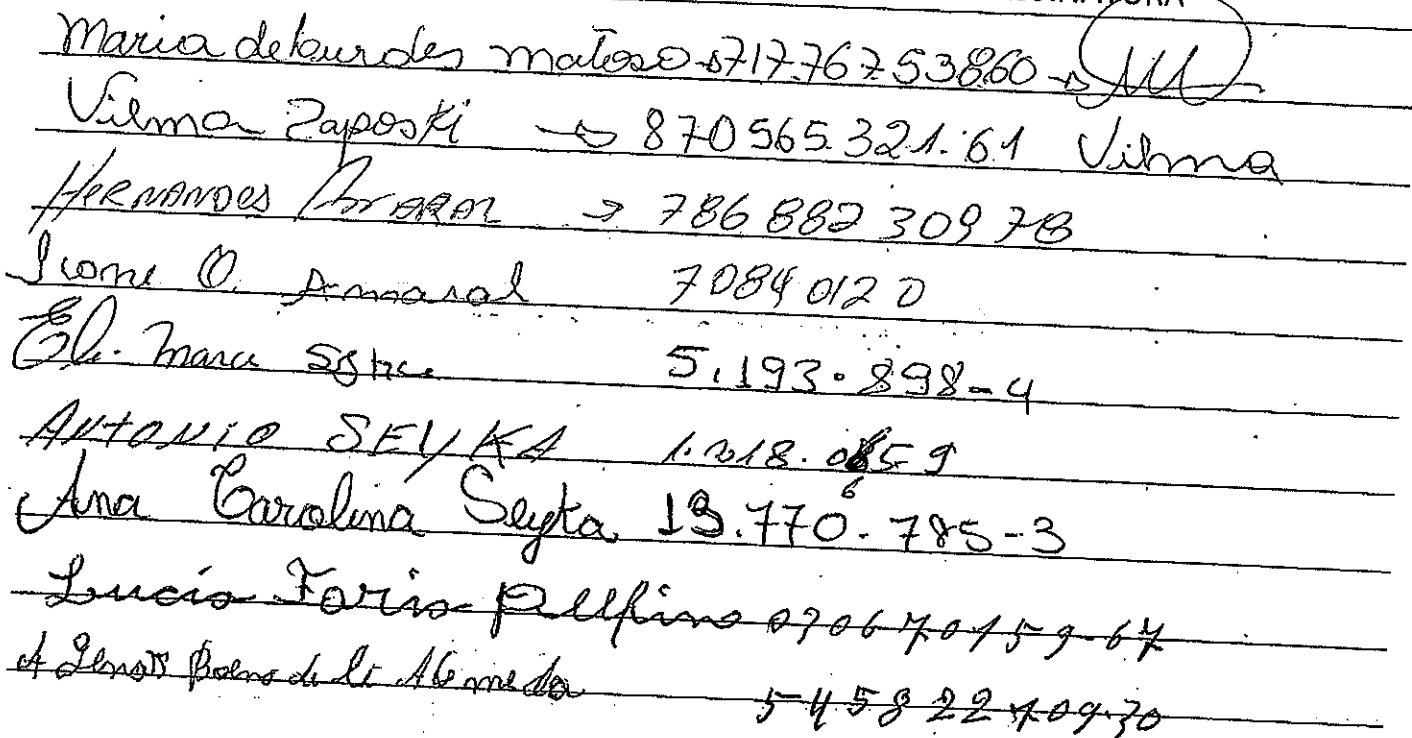 Maria de lourdes matoso → 717.767.53860 →
Vilma Zaposki → 870565.321.61 Vilma
HERNANDES AMARAL → 786 882 309 78
Ivone O. Amaral 7084012 0
5.193.898-4
ANTONIO SEYKA 1.218.0659
Ana Carolina Seyka 13.770.785-3
Lucia Faria 030670159-67
545822709.30